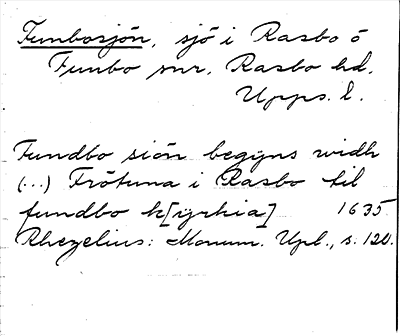 Funbosjön, sjö i Rasbo o
Funbo snr, Rasbo hd,
Upps. l.
Fundbo siön begÿns widh
(...) Frötuna i Rasbo til
fundbo k[ÿrkia] 1635.
Rhezelius: Monum. Upl., s. 120.